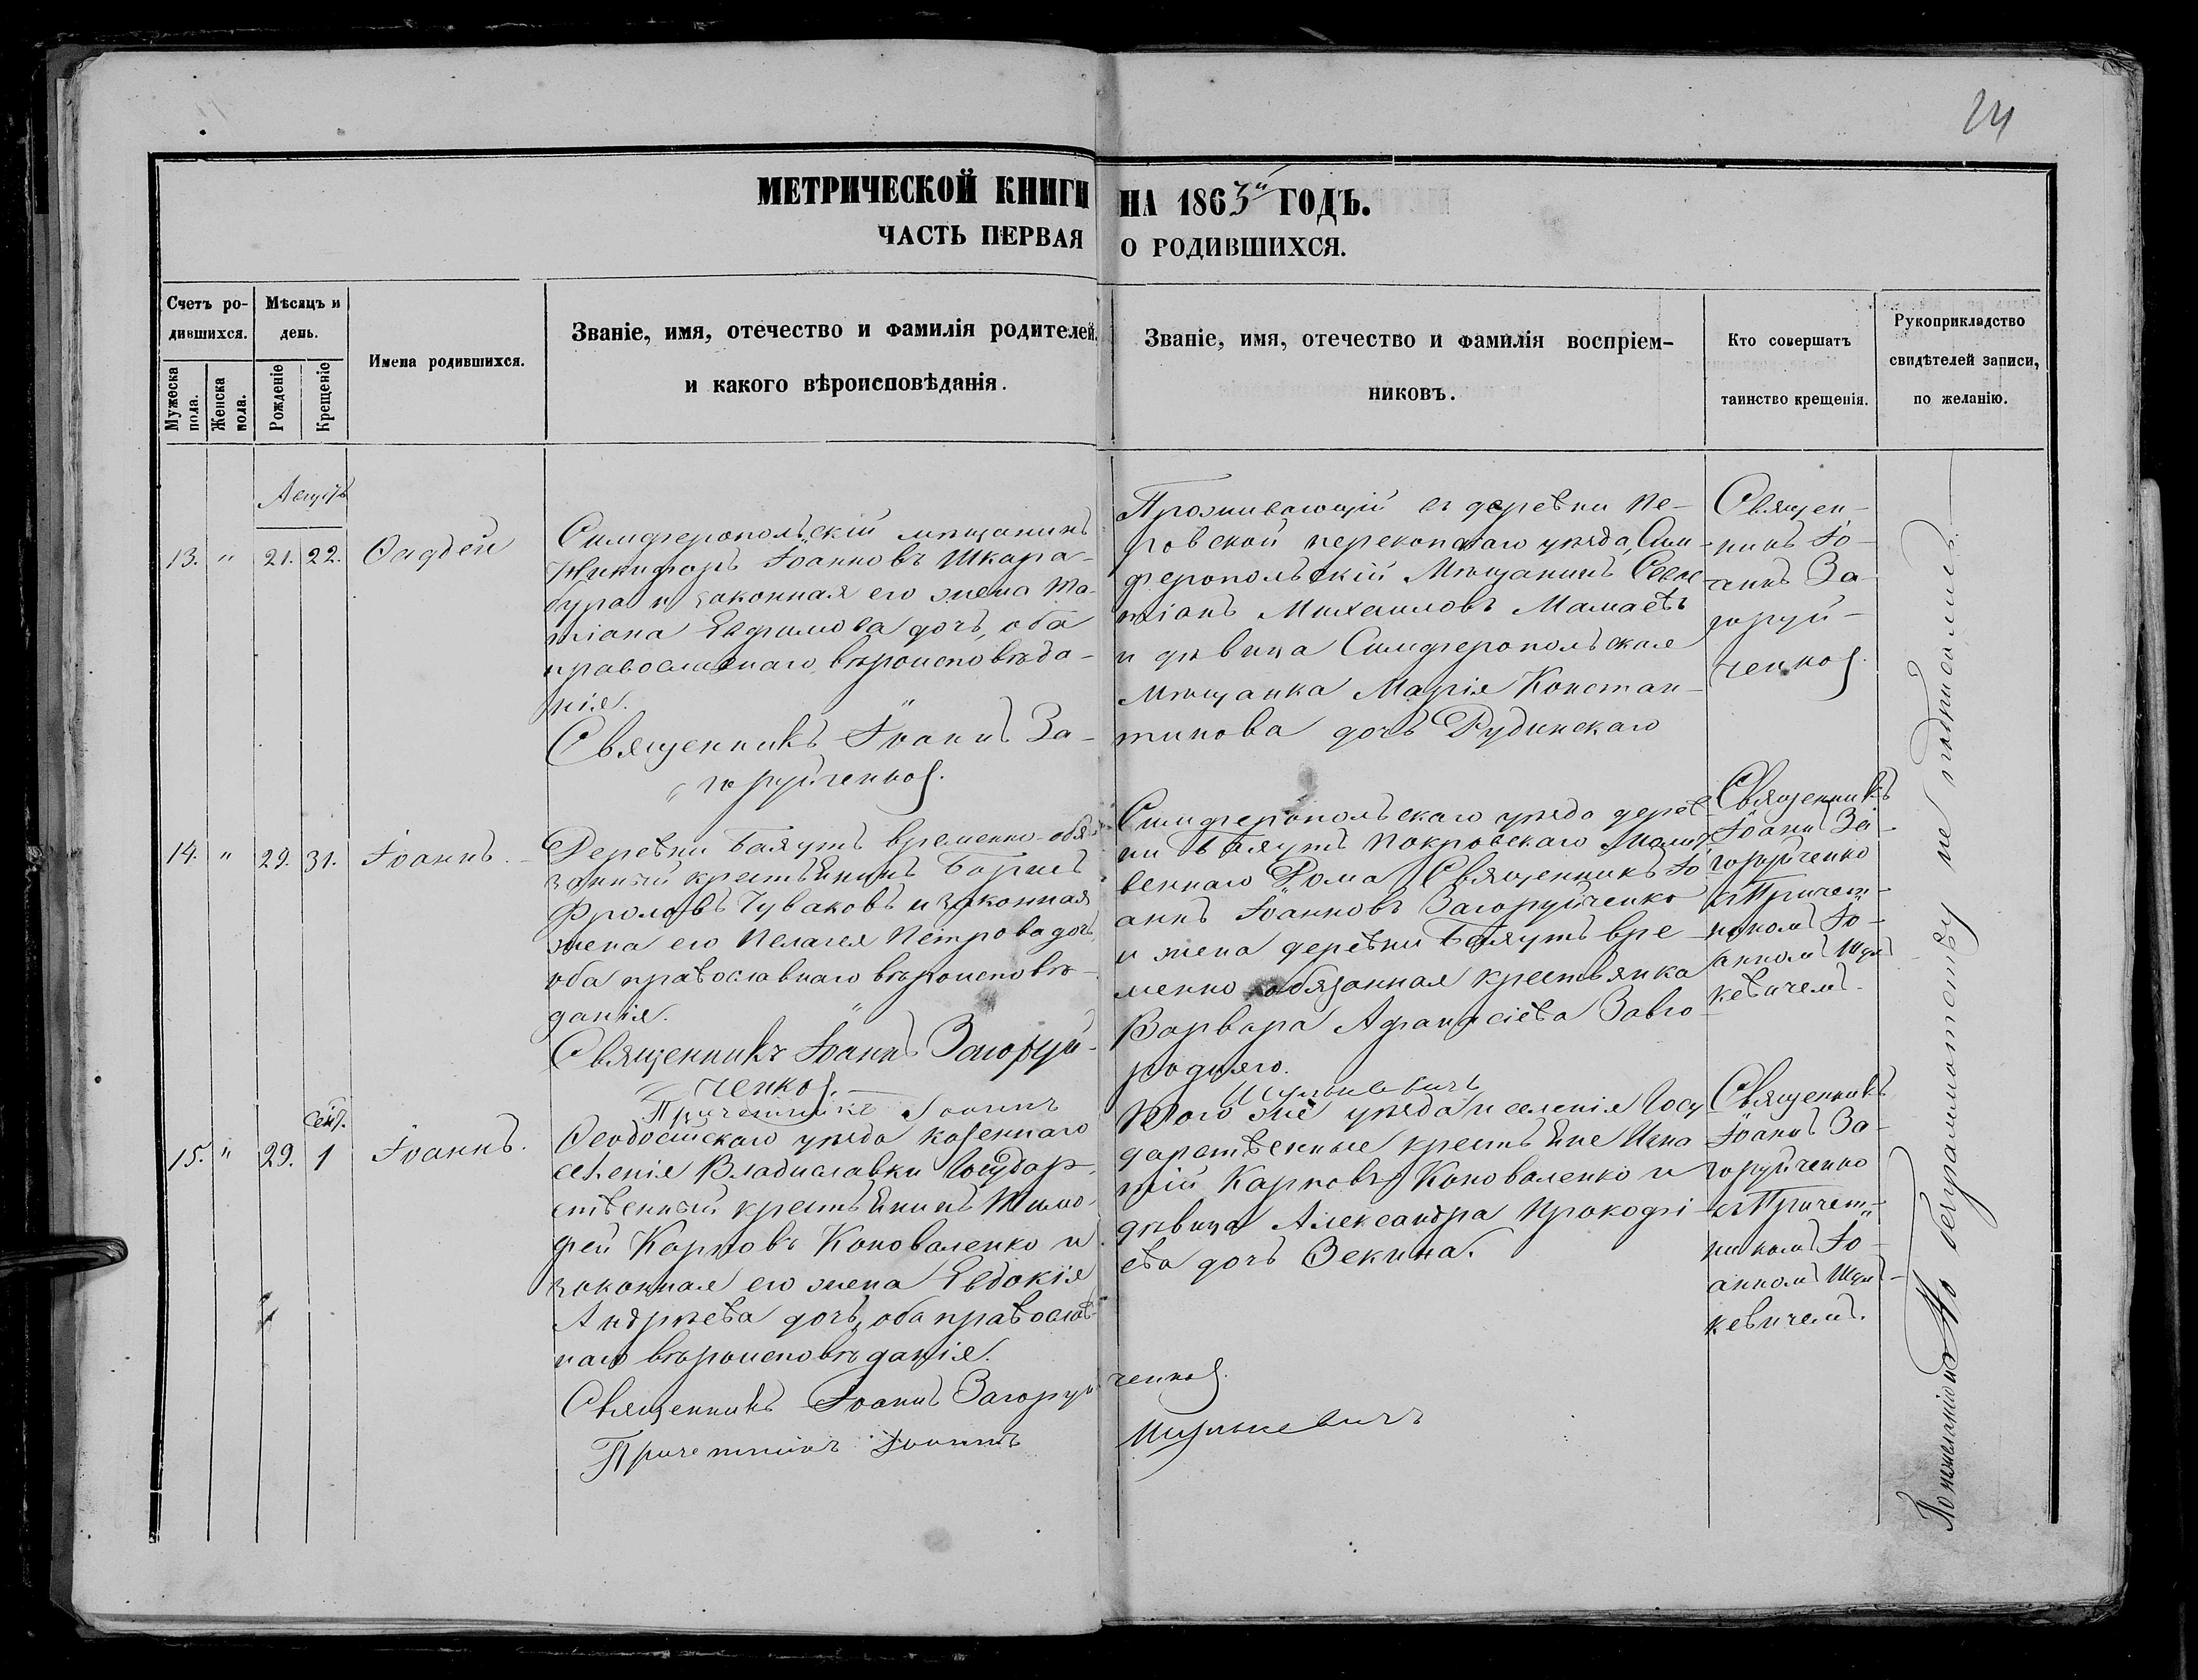 24
МЕТРИЧЕСКОЙ КНИГИ НА 1863й ГОДЪ.
ЧАСТЬ ПЕРВАЯ О РОДИВШИХСЯ.
Счетъ ро-
дившихся.
Мужеска пола.
Женска пола.
Мѣсяцъ и
день.
Рожденіе
Крещеніе
Имена родившихся.
Званіе, имя, отечество и фамилія родителей,
и какого вѣроисповѣданія.
Званіе, имя, отечество и фамилія воспріем-
никовъ.
Кто совершатъ
таинство крещенія.
Рукоприкладство
свидѣтелей записи,
по желанію.
Августъ
13. " 21. 22. Фаддей
Симферопольскій мѣщанинъ
Никифоръ Іоанновъ Шкара-
бура и законная его жена Та-
тіана Евфимова дочь, оба
православнаго вѣроисповѣда-
нія.
Священникъ Іоаннъ За-
горуйченко.
Проживающій въ деревни Пе-
ровской перекопскаго уѣзда, Сим-
феропольскій Мѣщанинъ Севас-
тіанъ Михаиловъ Мамаевъ
и дѣвица Симферопольская
Мѣщанка Марія Констан-
тинова дочь Рудинскаго
Священ-
никъ Іо-
аннъ За-
горуй-
ченко.
14. " 29. 31. Іоаннъ.
Деревни Баяутъ временно-обя-
занный крестьянинъ Борисъ
Фроловъ Чуваковъ и законная
жена его Пелагея Петрова дочь,
оба православнаго вѣроисповѣ-
данія.
Священникъ Іоаннъ Загоруй-
ченко.
Причетникъ Іоаннъ Шулькевичъ
Симферопольскаго уѣзда дерев-
ни Баяутъ Покровскаго Молит-
веннаго Дома Священникъ Іо-
аннъ Іоанновъ Загоруйченко
и жена деревни Баяутъ вре-
менно обязанная крестьянка
Варвара Афанасіева Завго-
родняго.
Священникъ
Іоаннъ За-
горуйченко
съ Причет-
никомъ Іо-
анномъ Шуль-
кевичемъ.
сент.
15. " 29. 1 Іоаннъ.
Феодосійскаго уѣзда казеннаго
селенія Владиславки Государ-
ственный крестьянинъ Тимо-
фей Карповъ Коноваленко и
законная его жена Евдокія
Андреева дочь, оба православ-
наго вѣроисповѣданія.
Священникъ Іоаннъ Загоруйченко.
Причетникъ Іоаннъ Шулькевичъ
Того же уѣзда и селенія Госу-
дарственные крестьяне Игна-
тій Карповъ Коноваленко и
дѣвица Александра Прокофі-
ева дочь Зекина.
Священникъ
Іоаннъ За-
горуйченко
съ Причет-
никомъ Іо-
анномъ Шуль-
кевичемъ.
По неграмотству не подписались.